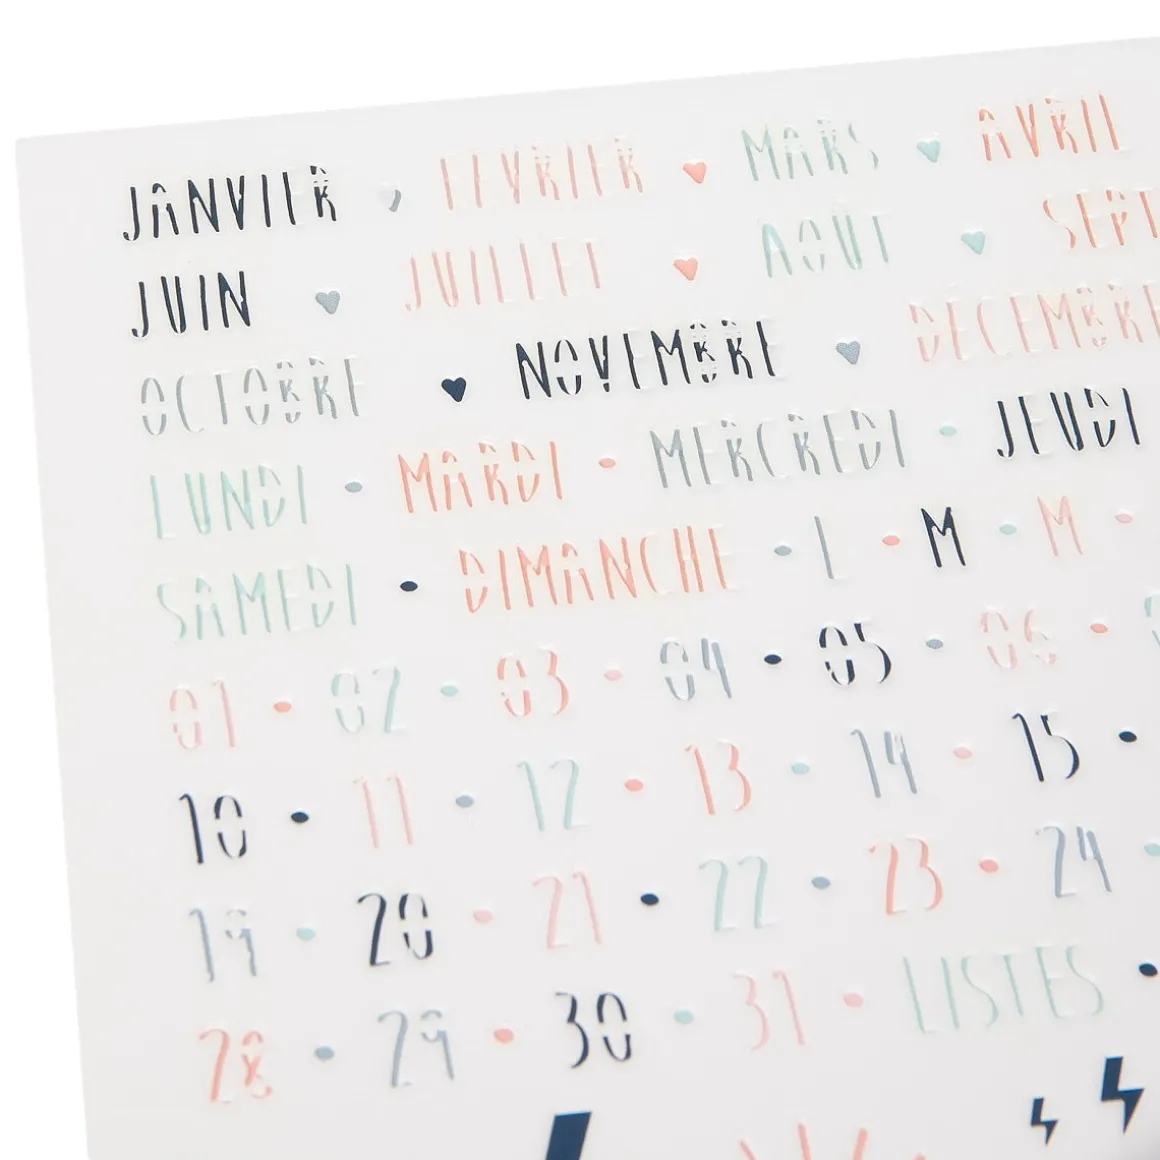 JANVIER FÉVRIER MARS AVRIL
JUIN JUILLET AOÛT SEPT
OCTOBRE NOVEMBRE DÉCEMBRE
LUNDI MARDI MERCREDI JEUDI
SAMEDI DIMANCHE L M M
01 02 03 04 05 06
10 11 12 13 14 15
19 20 21 22 23 24
28 29 30 31 LISTES